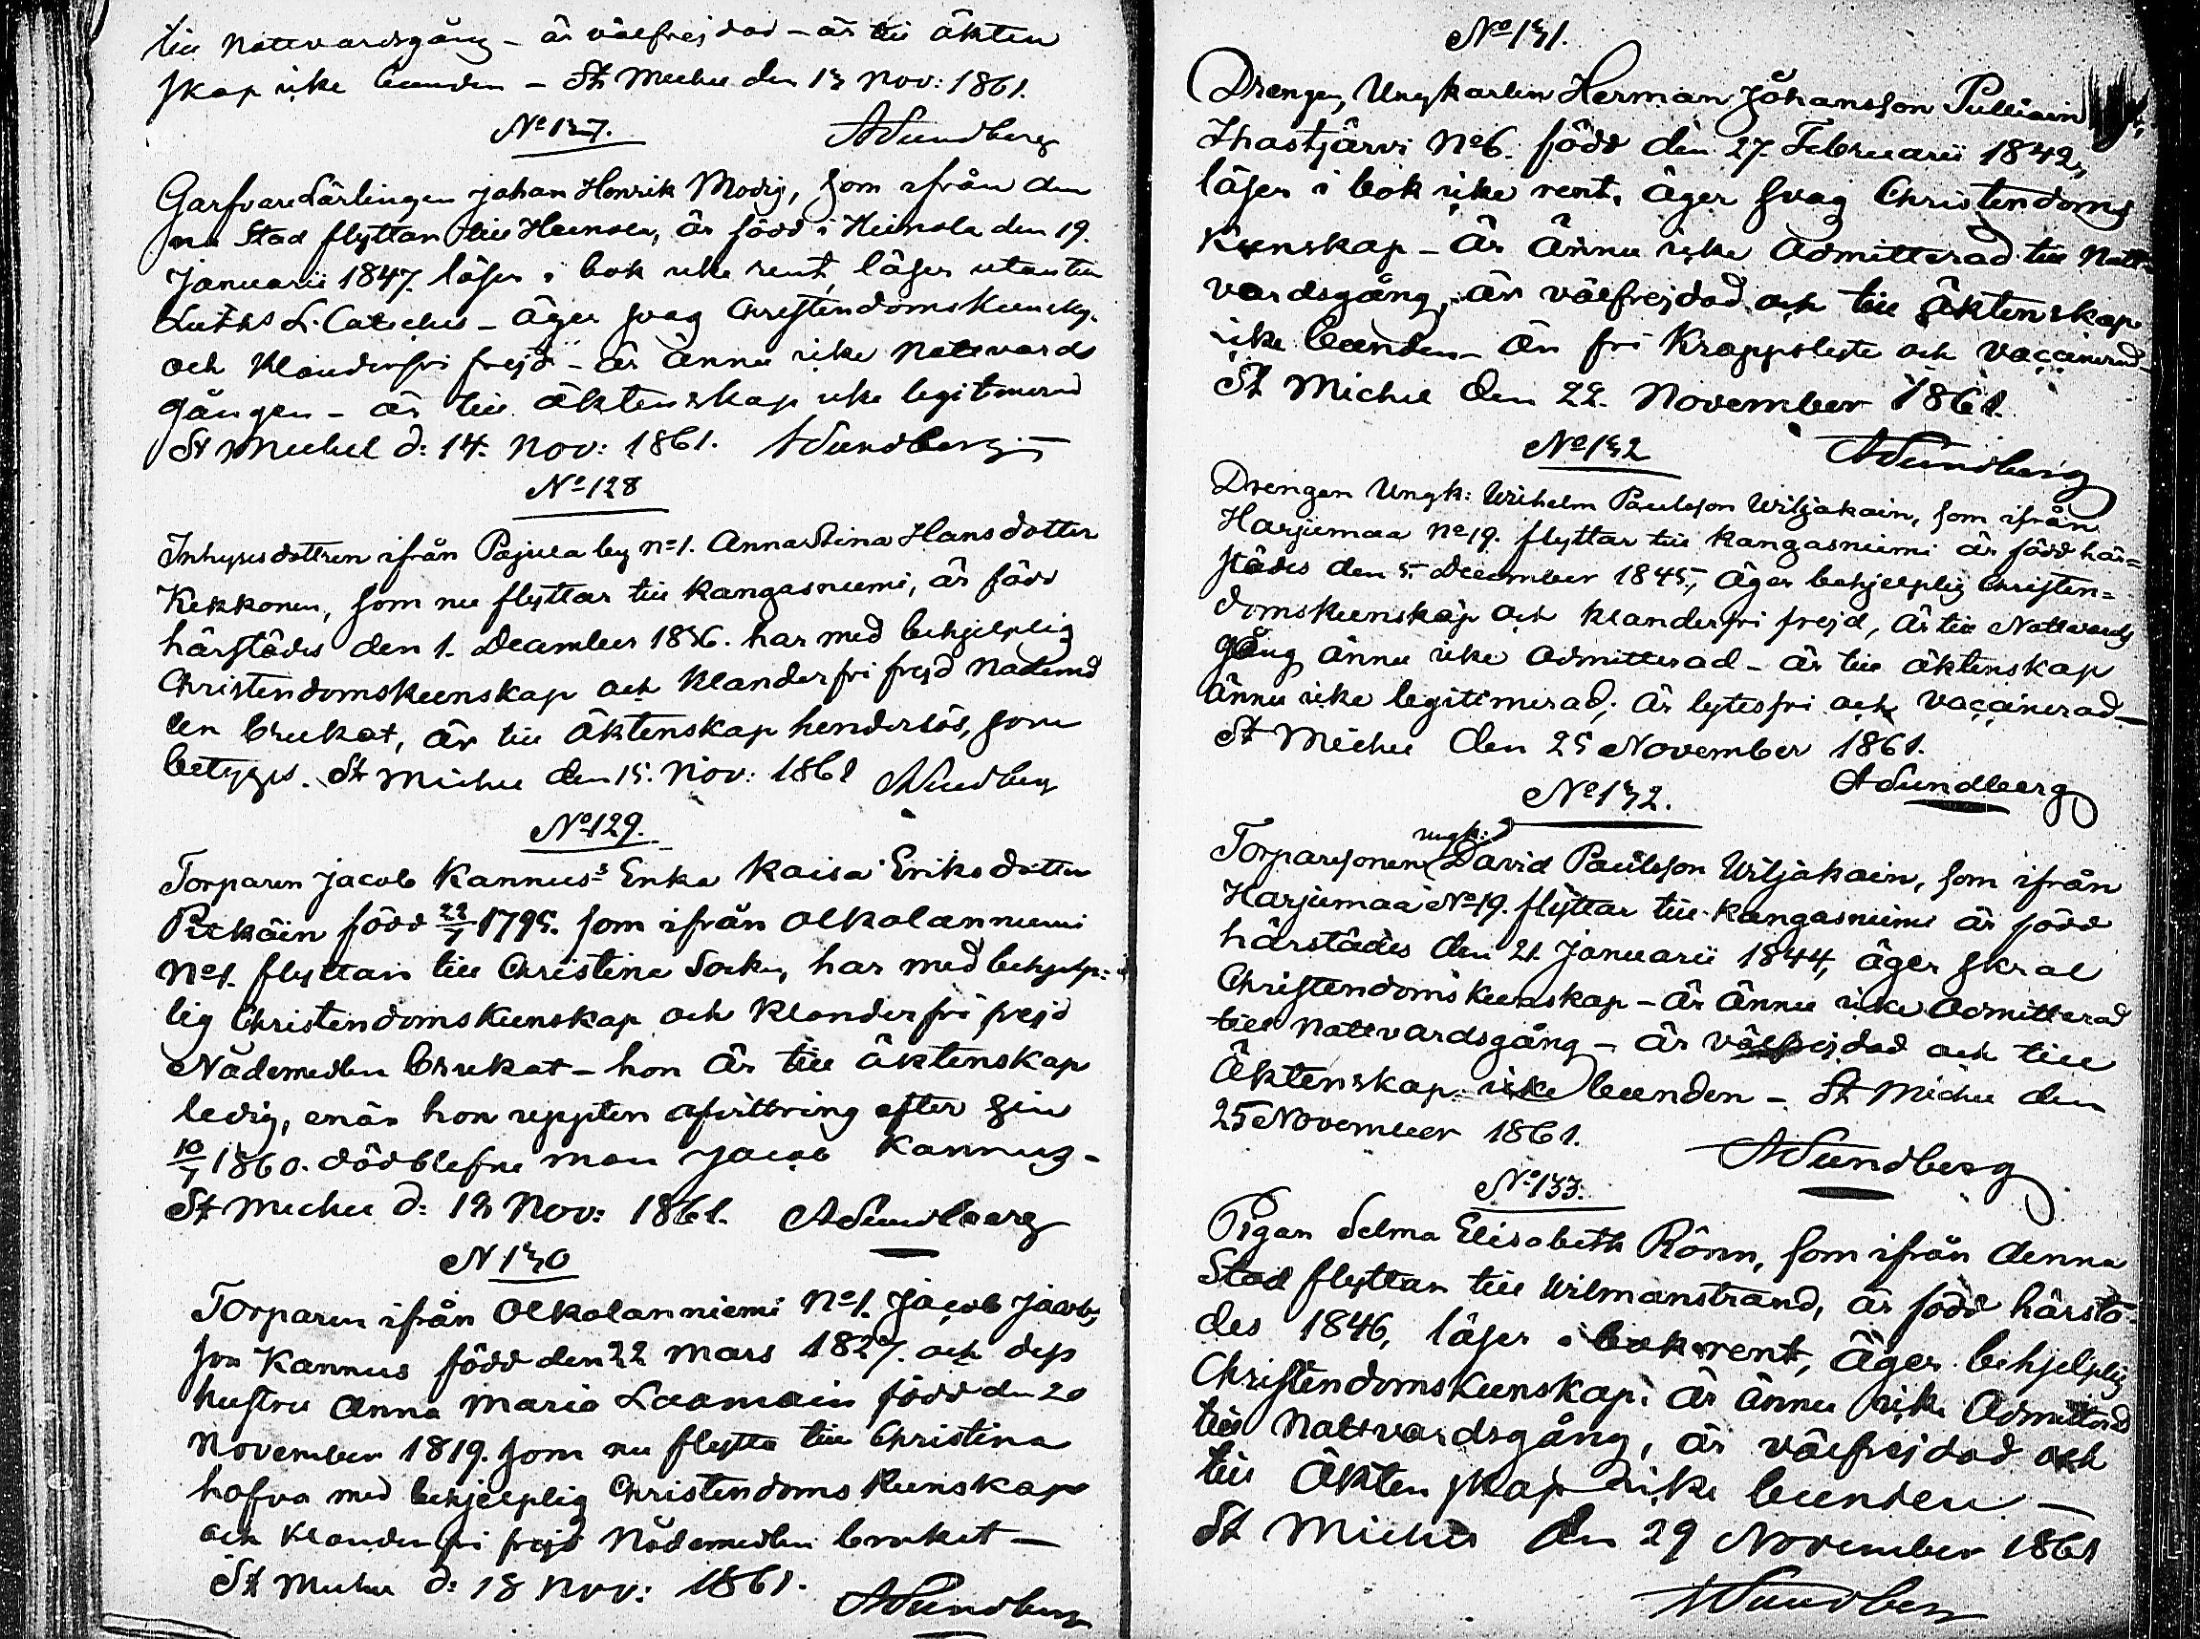 till Nattvardsgång - är välfrejdad - är till äkten
skap icke bunden - St Michel den 13 Nov: 1861.
No 127. ASundberg
Garfvarelärlingen Johan Henrik Modig, som ifrån den
na Stad flyttar till Heinola, är född i Heinola den 19.
Januarii 1847. läser i bok icke rent, läser utantill
Luth's L. Cateches - äger svag Christendomskunsky.
och klanderfri frejd - är ännu icke Nattvards
gången - är till äktenskap icke legitimerad
St Michel d: 14. Nov: 1861. ASundberg
No 128
Inhysesdottren ifrån Pajula by no 1. Anna Stina Hansdotter
Kekkonen, som nu flyttar till Kangasniemi, är född
härstädes den 1. December 1836. har med behjelplig
Christendomskunskap och klanderfri frejd Nådemed
len brukat, är till äktenskap hinderlös, som
betygas. St Michel den 15. Nov: 1861 ASundberg
No 129.
Torparen Jacob Kannus's Enka Kaisa Eriksdotter
född 22/7 1795. som ifrån Olkolanniemi
No 1. flyttar till Christina Sockn, har med behjelp-
lig Christendomskunskap och klanderfri frejd
Nådemedlen brukat - hon är till äktenskap
ledig, enär hon uppten afvittring efter sin
10/7 1860. dödblefne man Jacob Kannus -
St Michel d: 18 Nov: 1861. ASundberg
N 130
Torparen ifrån Olkolanniemi No 1. Jacob Jacobs
son Kannus född den 22 Mars 1827. och dess
hustru Anna Maria Laamain född den 20
November 1819. som nu flytta till Christina
hafva med behjelplig Christendoms kunskap
och klanderfri frejd Nådemedlen brukat -
St Michel d: 18 Nov: 1861. ASundberg
No 131.
Drengen, Ungkarlen Herman Johansson Pulliain
Ihastjärvi No 6. född den 27. Februarii 1842,
läser i bok icke rent, äger svag Christendoms
kunskap - är ännu icke admitterad till Natt-
vardsgång, är välfrejdad och till äktenskap
icke bunden - är fri kroppslyte och vaccinerad -
St Michel den 22. November 1861.
No 132 ASundberg
Drengen Ungk: Wilhelm Paulsson Wiljakain, som ifrån
Harjumaa No 19. flyttar till Kangasniemi är född här=
städes den 5. December 1845, äger behjelplig Christen=
domskunskap och klanderfri frejd, är till Nattvards
gång ännu icke admitterad - är till äktenskap
ännu icke legitimerad; är lytesfri och vaccinerad -
St Michel den 25 November 1861.
ASundberg
No 132.
Torparesonen ungk: David Paulsson Wiljakain, som ifrån
Harjumaa No 19. flyttar till Kangasniemi är född
härstädes den 21 Januarii 1844, äger skral
Christendomskunskap - är ännu icke admitterad
till Nattvardsgång - är välfrejdad och till
äktenskap icke bunden - St Michel den
25 November 1861.
ASundberg
No 133.
Pigan Selma Elisabeth Rönn, som ifrån denna
Stad flyttar till Wilmanstrand, är född härstä
des 1846, läser i bok rent, äger behjelplig
Christendomskunskap; är ännu icke admitterad
till Nattvardsgång, är välfrejdad och
till äktenskap icke bunden -
St Michel den 29 November 1861
ASundberg